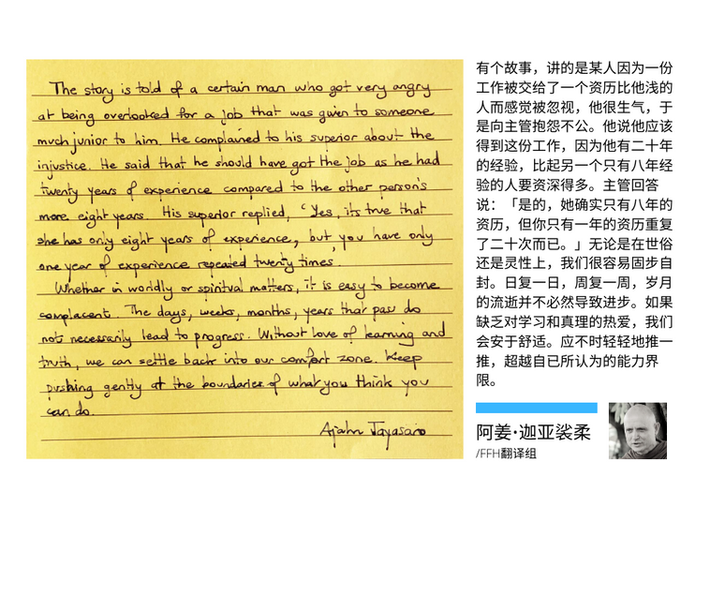 The story is told of a certain man who got very angry
at being overlooked for a job that was given to someone
much junior to him. He complained to his superior about the
injustice. He said that he should have got the job as he had
twenty years of experience compared to the other person's
more eight years. His superior replied, 'Yes, its true that
she has only eight years of experience, but you have only
one year of experience repeated twenty times.'
Whether in worldly or spiritual matters, it is easy to become
complacent. The days, weeks, months, years that pass do
not necessarily lead to progress. Without love of learning and
truth, we can settle back into our comfort zone. Keep
pushing gently at the boundaries of what you think you
can do.
Ajahn Jayasaro
有个故事，讲的是某人因为一份
工作被交给了一个资历比他浅的
人而感觉被忽视，他很生气，于
是向主管抱怨不公。他说他应该
得到这份工作，因为他有二十年
的经验，比起另一个只有八年经
验的人要资深得多。主管回答
说：「是的，她确实只有八年的
资历，但你只有一年的资历重复
了二十次而已。」无论是在世俗
还是灵性上，我们很容易固步自
封。日复一日，周复一周，岁月
的流逝并不必然导致进步。如果
缺乏对学习和真理的热爱，我们
会安于舒适。应不时轻轻地推一
推，超越自已所认为的能力界
限。
阿姜·迦亚裟柔
/FFH翻译组